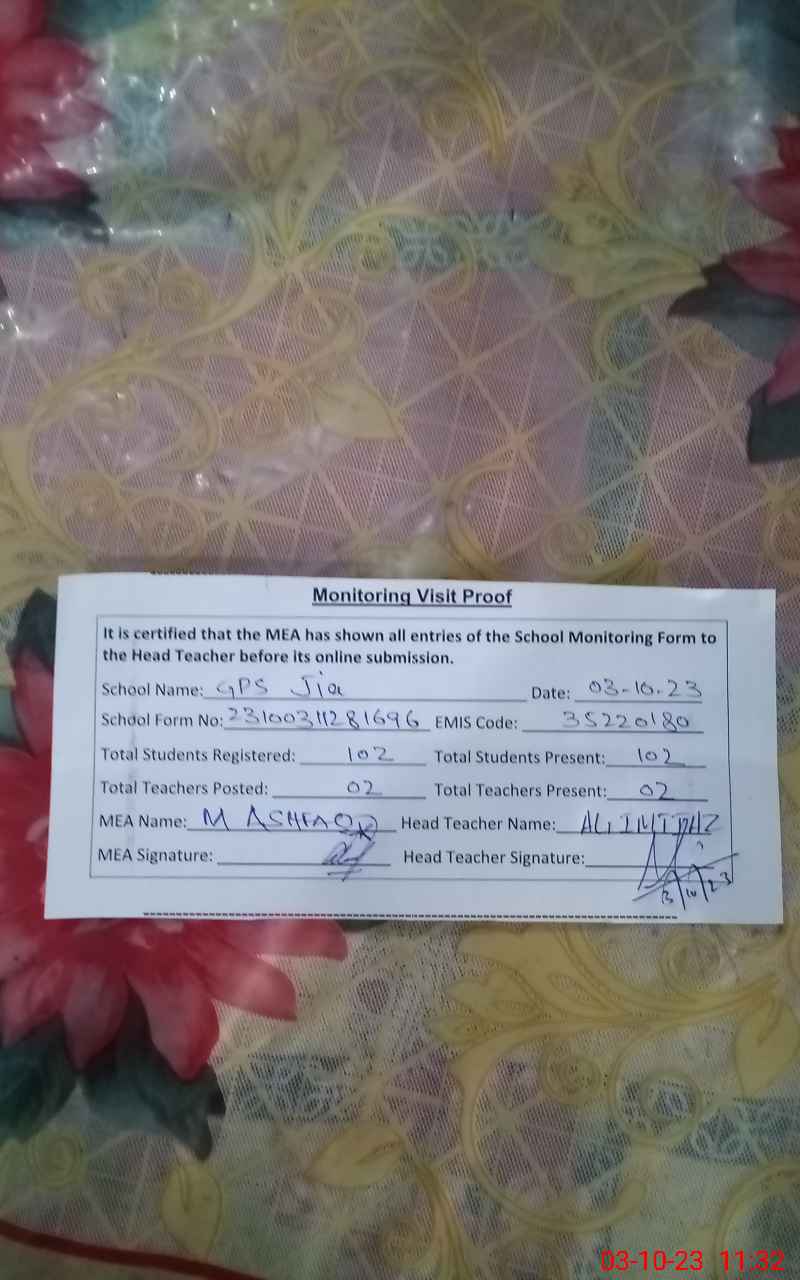 Monitoring Visit Proof
It is certified that the MEA has shown all entries of the School Monitoring Form to
the Head Teacher before its online submission.
School Name: GPS Jia Date: 03-10-23
School Form No: 23100311281696 EMIS Code: 35220180
Total Students Registered: 102 Total Students Present: 102
Total Teachers Posted: 02 Total Teachers Present: 02
MEA Name: M ASHFAQ Head Teacher Name: ALI IMTIAZ
MEA Signature: Head Teacher Signature:
3/10/23
03-10-23 11:32